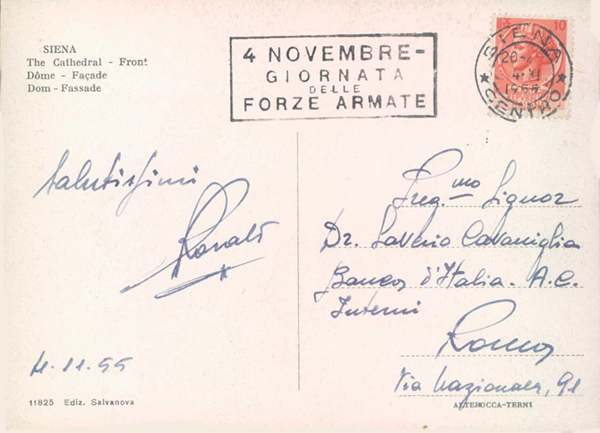 SIENA
The Cathedral - Front
Dôme - Façade
Dom - Fassade
4 NOVEMBRE -
GIORNATA
DELLE
FORZE ARMATE
10
SIENA
CENTRO
4·XI
1955
Salutissimi
4.11.55
11825 Ediz. Salvanova
Preg.mo Signor
Dr. Saverio Cavaniglia
Banca d'Italia - A.C.
Interni
Roma
Via Nazionale, 91
ALTEROCCA-TERNI